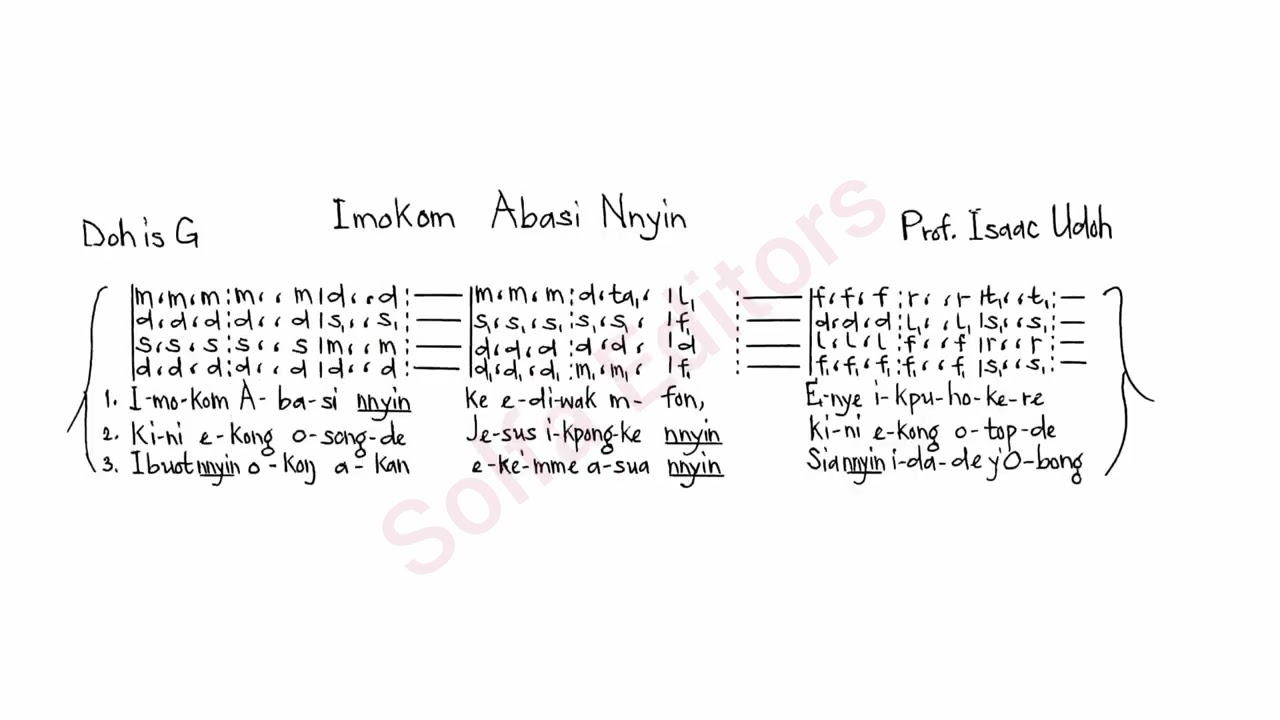 Imokom Abasi Nnyin
Doh is G
Prof. Isaac Udoh
|m,m,m:m,,m|d,,d:—|m,m,m:d,ta₁,|l₁ :—|f,f,f:r,,r|t₁,,t₁:—
d,d,d:d,,d|s₁,,s₁:—|s₁,s₁,s₁:s₁,s₁,|f₁ :—|d,d,d:l₁,,l₁|s₁,,s₁:—
s,s,s:s,,s|m,,m:—|d,d,d:d,d,|d :—|l,l,l:f,,f|r,,r:—
d,d,d:d,,d|d,,d:—|d₁,d₁,d₁:m₁,m₁,|f₁ :—|f₁,f₁,f₁:f₁,,f₁|s₁,,s₁:—
1. I-mo-kom A-ba-si nnyin ke e-di-wak m-fon, E-nye i-kpu-ho-ke-re
2. Ki-ni e-kong o-song-de Je-sus i-kpong-ke nnyin ki-ni e-kong o-top-de
3. Ibuot nnyin o-koŋ a-kan e-ke-imme a-sua nnyin Sia nnyin i-da-de y'O-bong
Solfa Editors